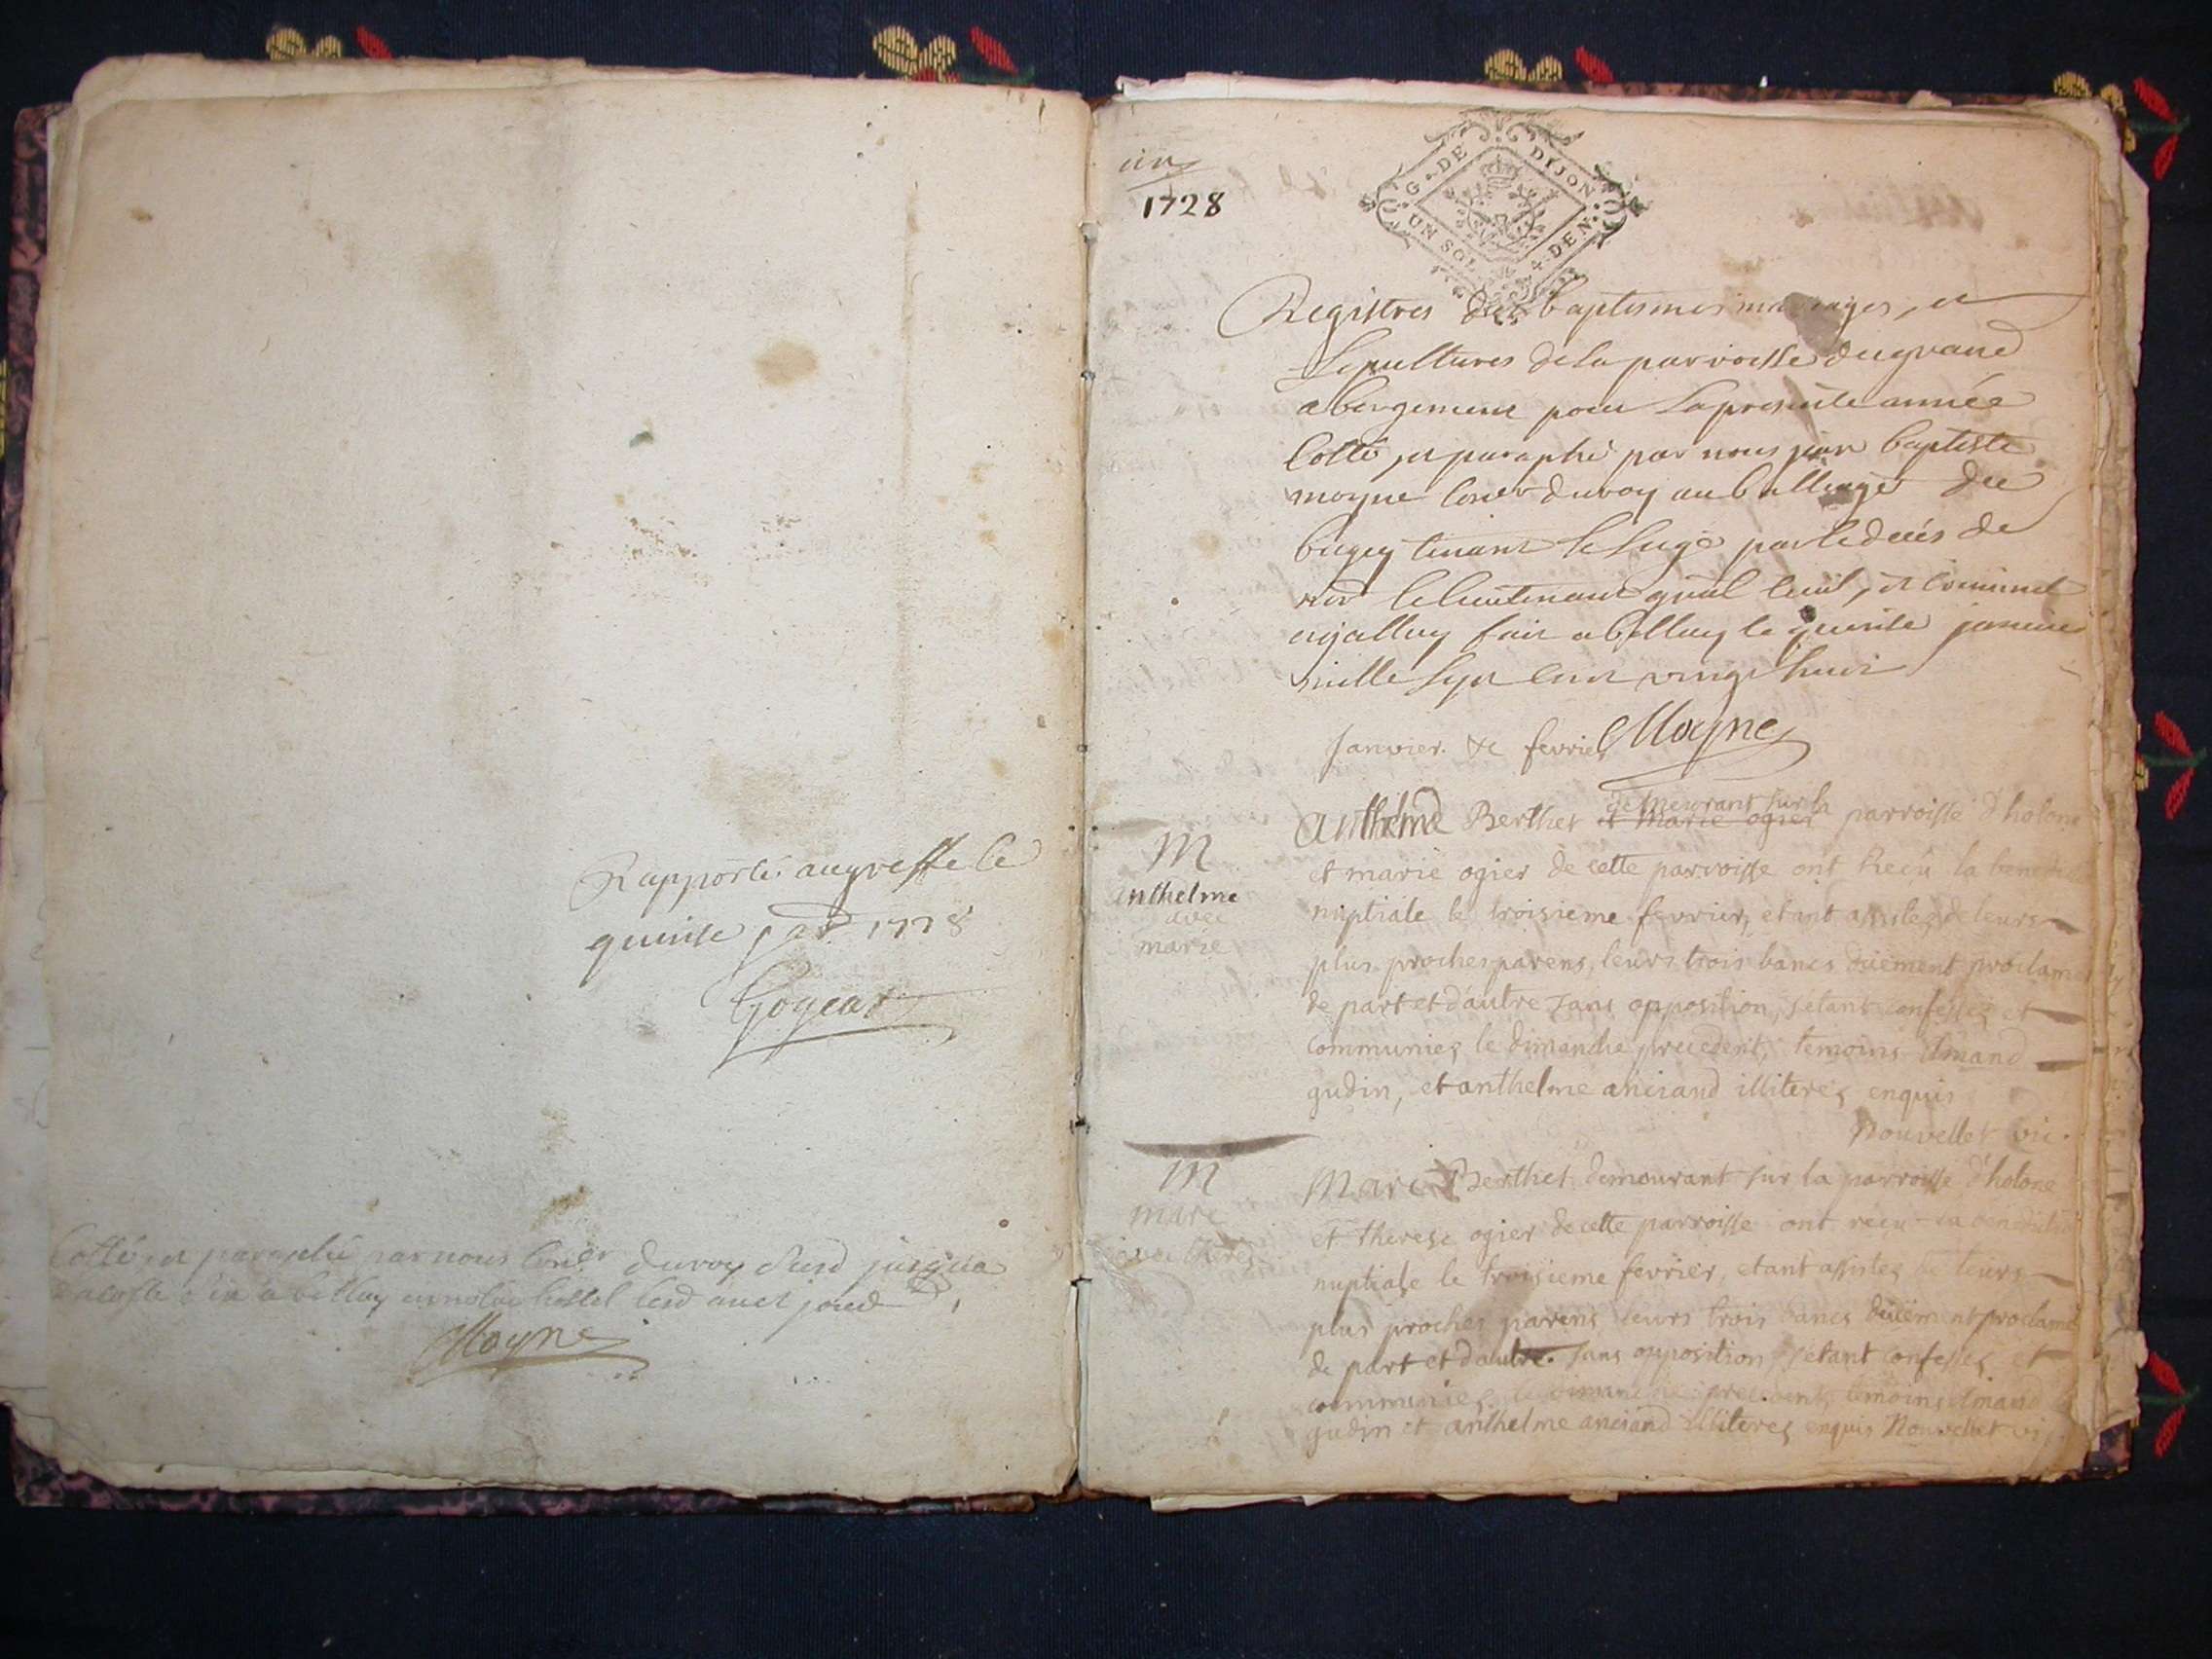 Rapporté au greffe le
quinse 1728
Goyeat
Cotté, et paraphé par nous du roy jusqua
a bellay
Moyne
un
1728
G. DE DIJON
UN SOL 4 DEN.
Registres des baptismes mariages, et
Sepultures de la parroisse du grand
abergement pour La presente année
Cotté, et paraphé par nous jean baptiste
moyne Coner du roy au balliage du
bugey tenant le Siege par le deces de
le lieutenant gnal Civil, et Criminel
fait a bellay le quinse janvier
mille Sept Cent vingt huit
Moyne
Janvier. & fevrier
demeurant sur la
Anthelme Berthet et Marie ogier parroisse d'holone
M
anthelme
avec
marie
et marie ogier de cette parroisse ont Reçu la
nuptiale le troisieme fevrier, etant assistez de leurs
plus proches parens, leurs trois bancs duëment proclamez
de part et d'autre sans opposition, s'etant confessez et
communiez le dimanche precedent, temoins
gudin, et anthelme anciand illiterez enquis
Nouvellet vic.
M
marc
avec
Marc Berthet demeurant sur la parroisse d'holone
et therese ogier de cette parroisse ont reçu la
nuptiale le troisieme fevrier, etant assistez de leurs
plus proches parens leurs trois bancs duëment proclamez
de part et d'autre. sans opposition s'etant confessez et
communiez le dimanche precedent, temoins
gudin et anthelme anciand illiterez enquis Nouvellet vi